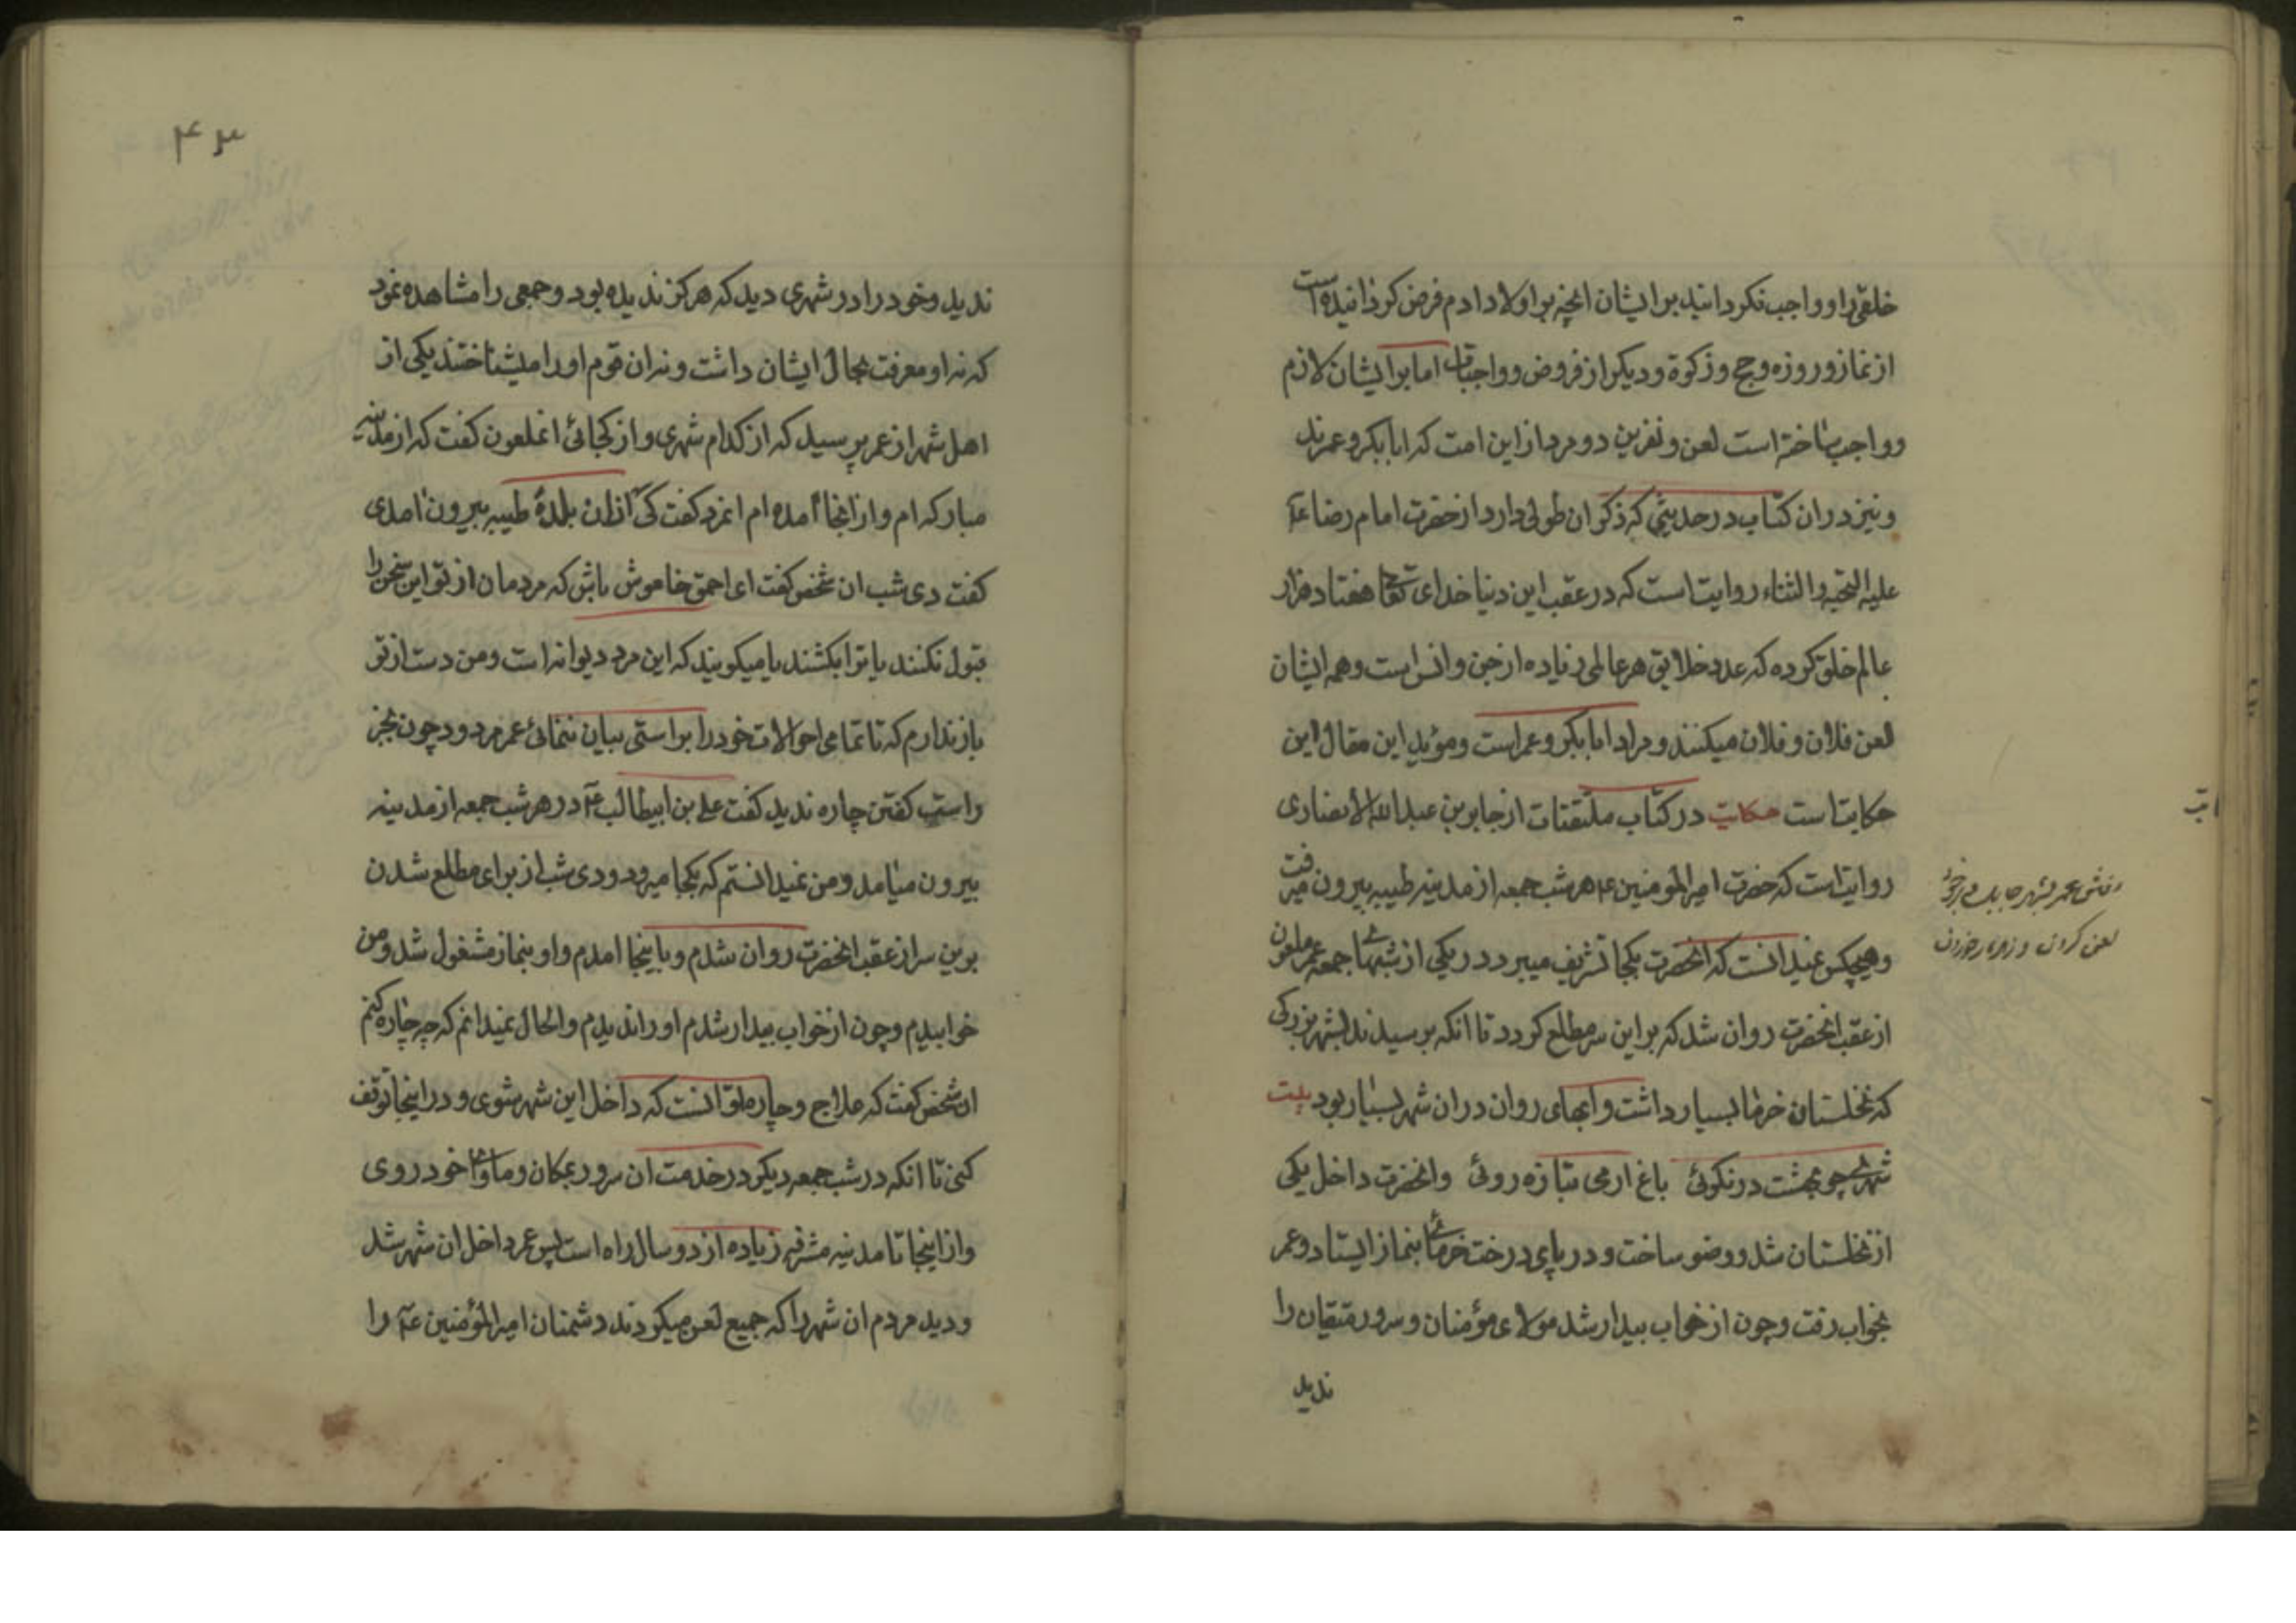 خلقی را و واجب نکردانید بر ایشان انچه بر اولاد ادم فرض کردانیده است
از نماز و روزه و حج و زکوة و دیکر از فروض و واجبات اما بر ایشان لازم
و واجب ساخته است لعن و نفرین دو مرد از این امت که ابابکر و عمرند
و نیز در ان کتاب در حدیثی که ذکر ان طولی دارد از حضرت امام رضا ع
علیه التحیه والثناء روایت است که در عقب این دنیا خدای تعالی هفتاد هزار
عالم خلق کرده که عدد خلایق هر عالمی زیاده از جن و انس است و همه ایشان
لعن فلان و فلان میکنند و مراد ابابکر و عمر است و مؤید این مقال این
حکایت است حکایت در کتاب ملتقتات از جابر بن عبدالله الانصاری
روایت است که حضرت امیرالمومنین ع هر شب جمعه از مدینه طیبه بیرون میرفت
و هیچکس نمیدانست که انحضرت بکجا تشریف میبرد در یکی از شبهای جمعه عمر ملعون
از عقب انحضرت روان شد که بر این سر مطلع کردد تا انکه برسیدند بشهر بزرکی
که نخلستان خرما بسیار داشت و ابهای روان در ان شهر بسیار بود بیت
شهری چو بهشت در نکوئی باغ ارمی بتازه روئی وانحضرت داخل یکی
از نخلستان شد و وضو ساخت و در پای درخت خرمائی بنماز ایستاد و عمر
بخواب رفت و چون از خواب بیدار شد مولای مؤمنان و سرور متقیان را
ندید
رفتن عمر بشهر
لعن کردن و
۴۳
ندید و خود را در شهری دید که هرکز ندیده بود و جمعی را مشاهده نمود
که نه او معرفت بحال ایشان داشت و نه ان قوم او را میشناختند یکی از
اهل شهر از عمر پرسید که از کدام شهری و از کجائی انملعون کفت که از مدینه
مبارکه ام و از انجا امده ام انمرد کفت کی از ان بلدهٔ طیبه بیرون امدی
کفت دی شب ان شخص کفت ای احمق خاموش باش که مردمان از تو این سخن را
قبول نکنند یا ترا بکشند یا میکویند که این مرد دیوانه است و من دست از تو
باز ندارم که تا تمامی احوالات خود را براستی بیان ننمائی عمر مردود چون بجز
راست کفتن چاره ندید کفت علی بن ابیطالب ع در هر شب جمعه از مدینه
بیرون میامد و من نمیدانستم که بکجا میرود و دی شب از برای مطلع شدن
برین سر از عقب انحضرت روان شدم و باینجا امدم و او بنماز مشغول شد و من
خوابیدم و چون از خواب بیدار شدم او را ندیدم والحال نمیدانم که چه چاره کنم
ان شخص کفت که علاج و چاره تو انست که داخل این شهر شوی و در اینجا توقف
کنی تا انکه در شب جمعه دیکر در خدمت ان سرور بمکان و ماوای خود روی
و از اینجا تا مدینه مشرفه زیاده از دو سال راه است پس عمر داخل ان شهر شد
و دید مردم ان شهر را که جمیع لعن میکردند دشمنان امیرالمؤمنین ع را